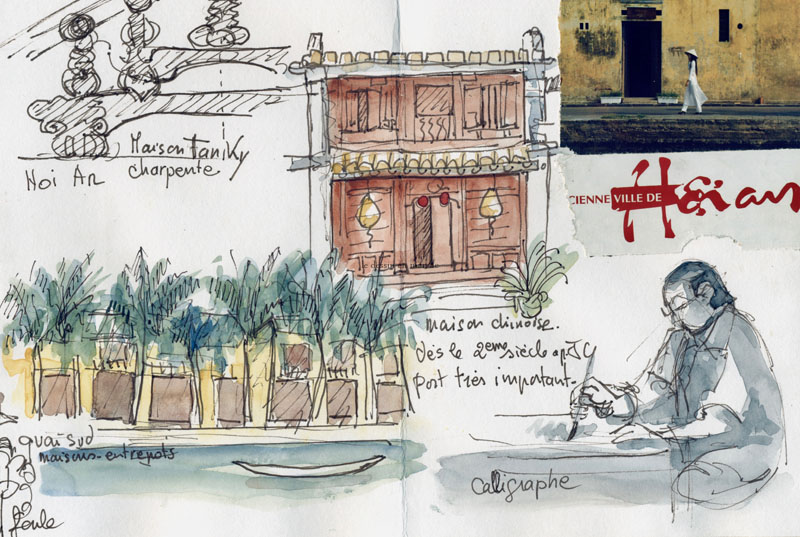 Maison Taniky
charpente
Hoi An
CIENNE VILLE DE Hội an
maison chinoise.
dès le 2ème siècle ap JC
port très important.
quai sud
maisons-entrepots
Calligraphe
foule